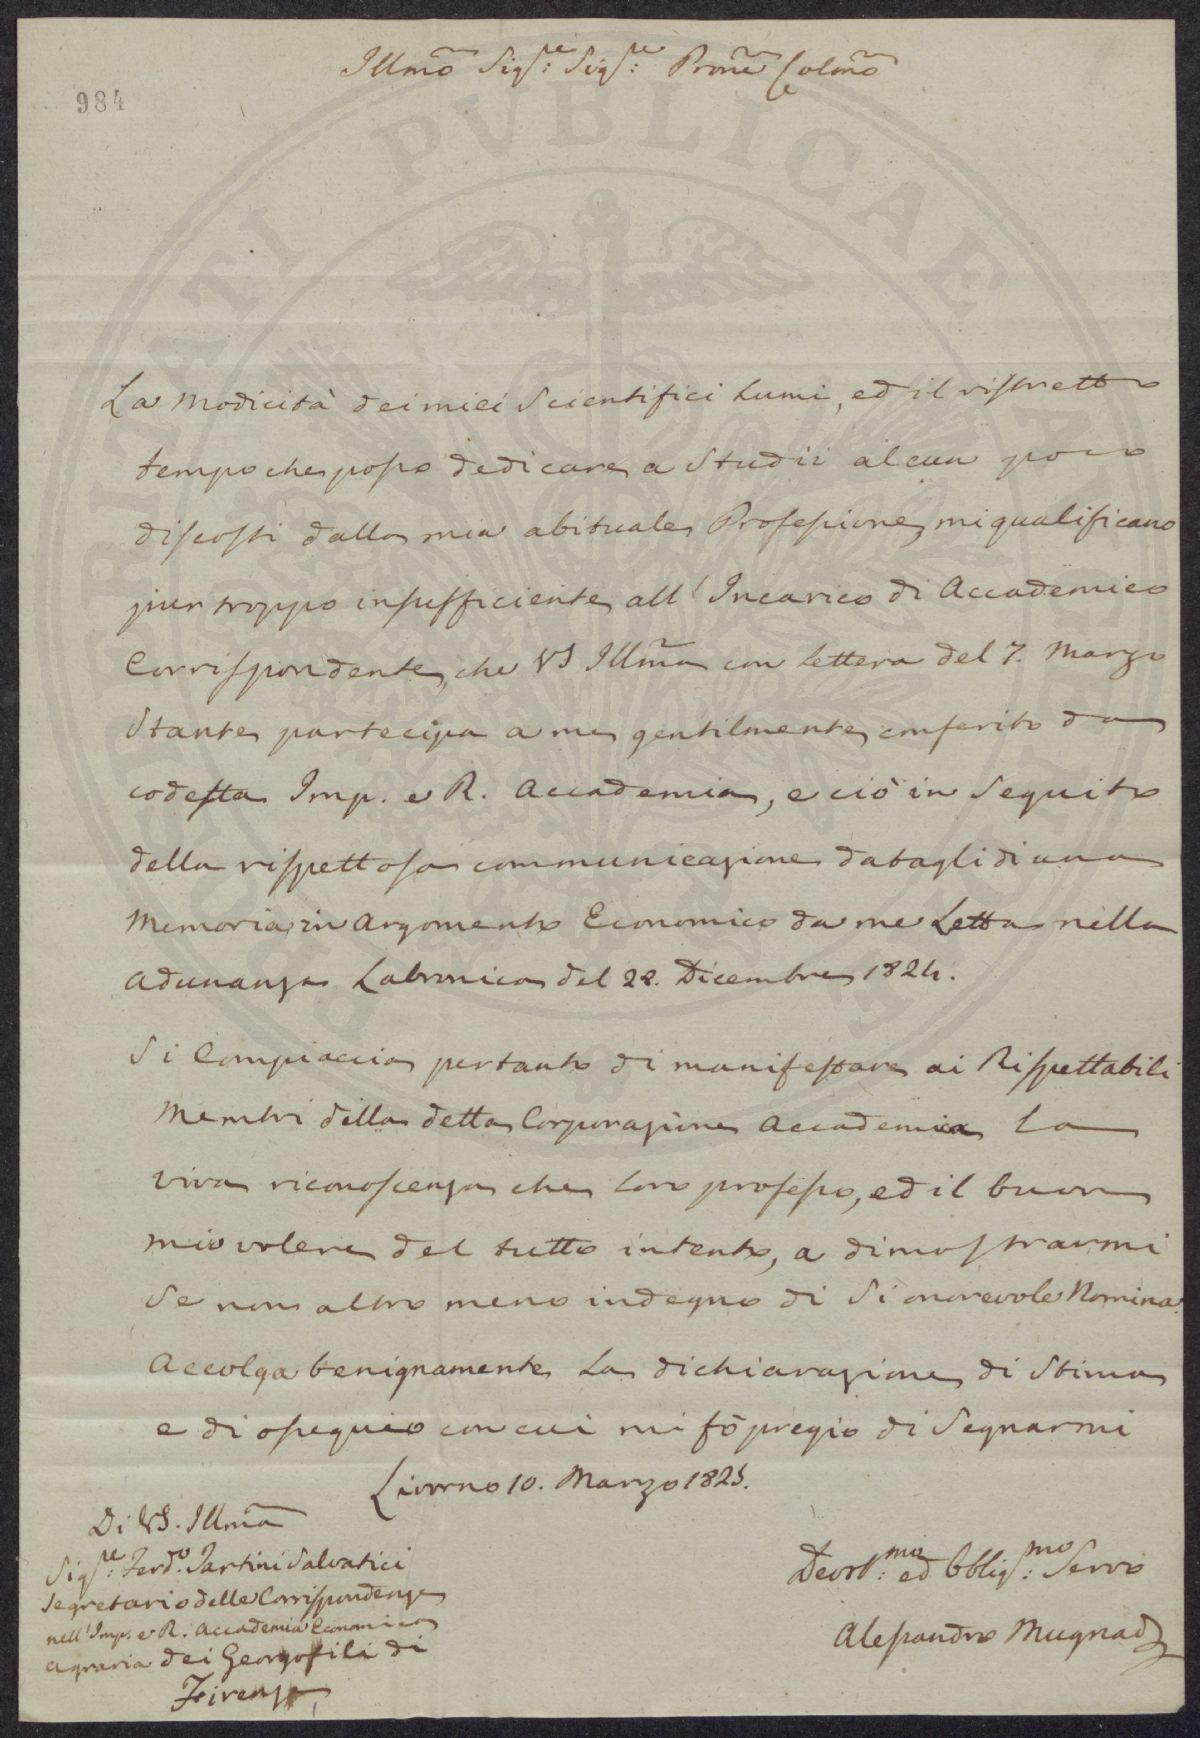 Illmo Sig.re Sig.re Prone Colmo
984
La modicità dei miei Scientifici Lumi, ed il ristretto
tempo che posso dedicare a Studii alcun poco
discosti dalla mia abituale Professione, mi qualificano
pur troppo insufficiente all' Incarico di Accademico
Corrispondente, che VS Illma con Lettera del 7. Marzo
Stante partecipa a me gentilmente conferito da
codesta Imp. e R. Accademia, e ciò in Seguito
della rispettosa communicazione da
di una
Memoria in Argomento Economico da me Letta nella
Adunanza Labronica del 22. Dicembre 1824.
Si Compiaccia pertanto di manifestare ai Rispettabili
Membri della detta Corporazione Accademica La
viva riconoscenza che Loro professo, ed il buon
mio volere del tutto intento, a dimostrarmi
Se non altro meno indegno di Si onorevole Nomina.
Accolga benignamente La dichiarazione di Stima
e di ossequio con cui mi fò pregio di Segnarmi
Livorno 10. Marzo 1825.
Di VS. Illma
Sig.re Ferd.o Tartini Salvatici
Segretario delle Corrispondenze
nell'Imp. e R. Accademia Economico
Agraria dei Georgofili di
Firenze
Devot.mo ed Obblig.mo Servo
Alessandro Mugnai
PVBLICAE